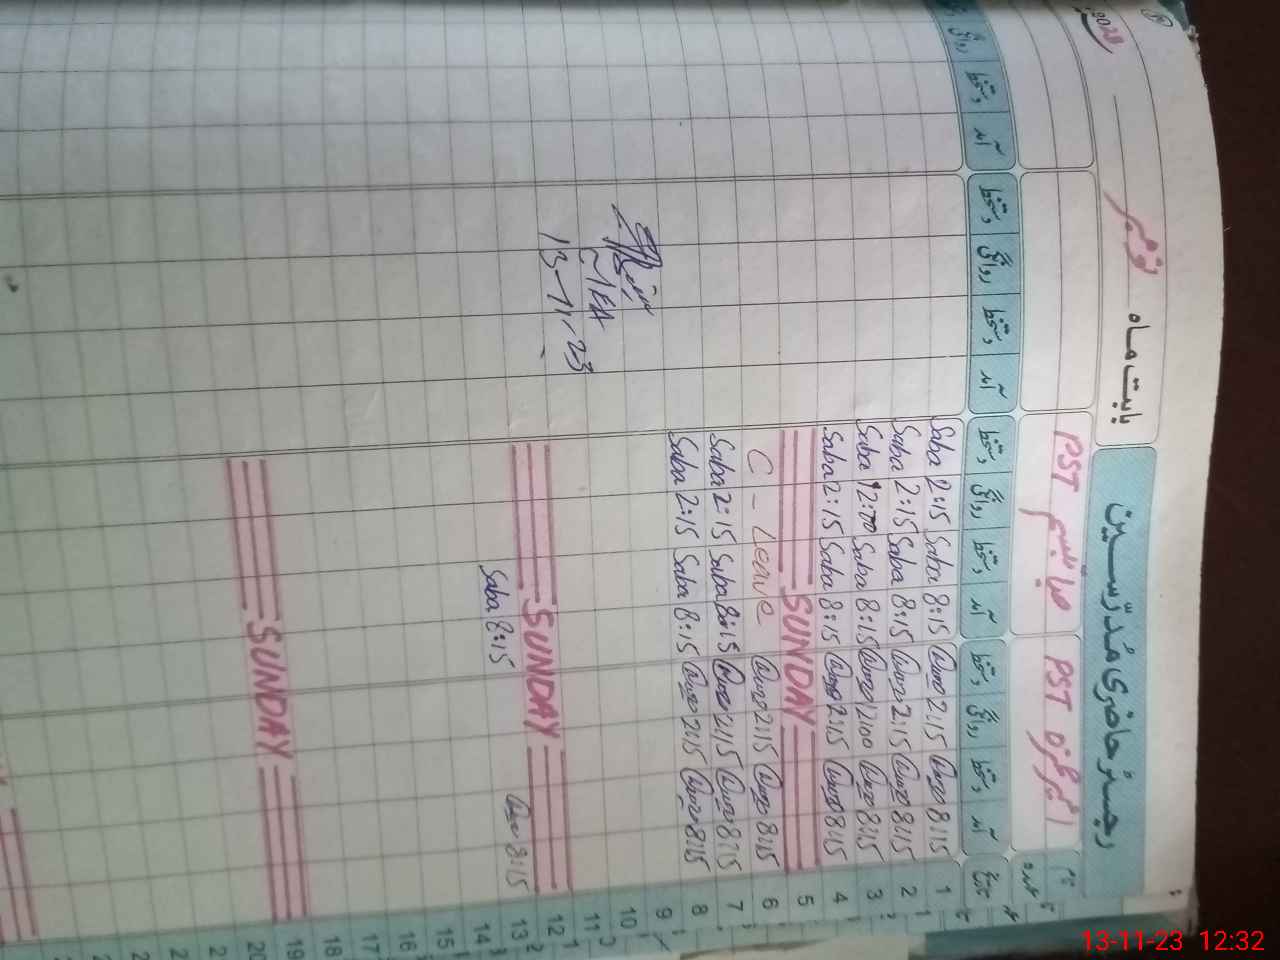 رجسٹر حاضری مُدرّسین
بابت ماہ نومبر 2023
نام و عہدہ
PST
PST صبا تبسم
تاریخ آمد دستخط روانگی دستخط آمد دستخط روانگی دستخط آمد دستخط روانگی دستخط آمد دستخط روانگی
1 8:15 2:15 8:15 Saba 2:15 Saba
2 8:15 2:15 8:15 Saba 2:15 Saba
3 8:15 12:00 8:15 Saba 12:00 Saba
4 8:15 2:15 8:15 Saba 2:15 Saba
5 SUNDAY
6 8:15 2:15 C - Leave
7 8:15 2:15 8:15 Saba 2:15 Saba
8 8:15 2:15 8:15 Saba 2:15 Saba
9
10
11
12 SUNDAY
13 8:15 8:15 Saba
14
15
16
17
18
19 SUNDAY
20
13-11-23
13-11-23 12:32